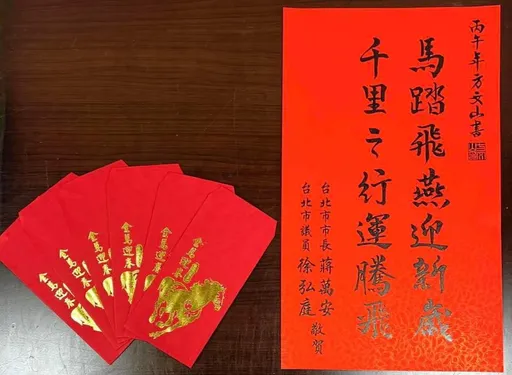 丙午年方文山書
馬踏飛燕迎新歲
千里之行運騰飛
台北市市長蔣萬安
台北市議員徐弘庭
敬賀
金馬迎春
金馬迎春
金馬迎春
金馬迎春
金馬迎春